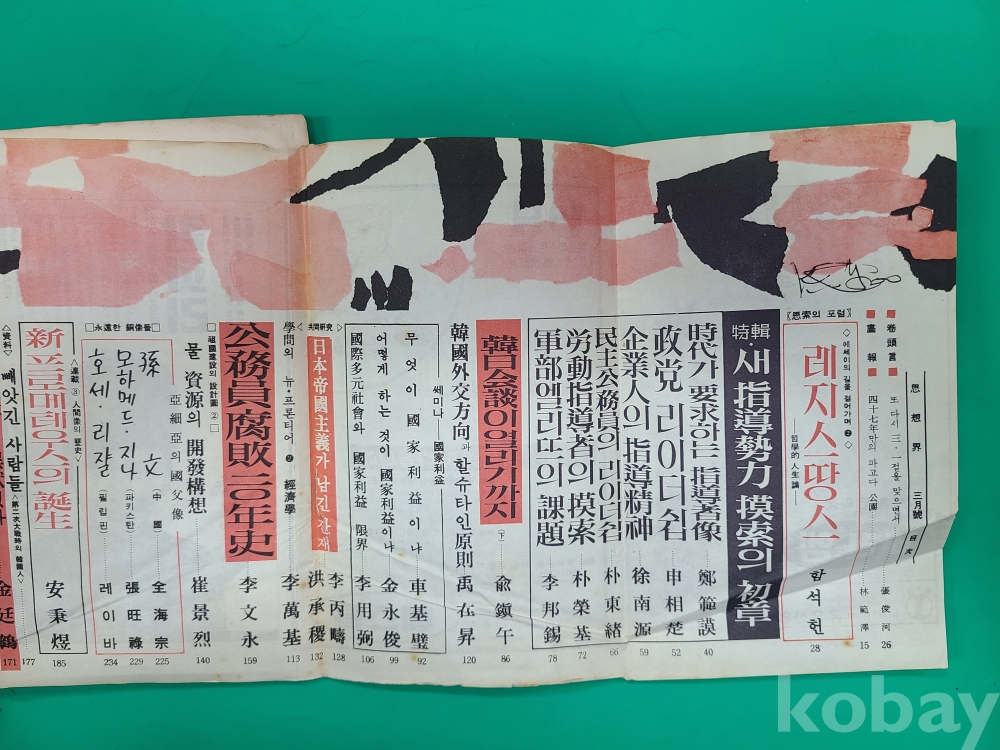 思想界 三月號 目次
■ 卷頭言 ■ 또 다시 三·一절을 맞으면서 張俊河 26
■ 畫報 ■ 四十七年만의 파고다 公園 林範澤 15
《思索의 포럼》
◇에세이의 길을 걸어가며❷◇
레지스땅스
—哲學的 人生論
함석헌 28
特輯·새 指導勢力 摸索의 初章
時代가 要求하는 指導者像 鄭範謨 40
政党 리이더쉽 申相楚 52
企業人의 指導精神 徐南源 59
民主公務員의 리이더쉽 朴東緖 66
勞動指導者의 摸索 朴榮基 72
軍部엘리뜨의 課題 李邦錫 78
韓日会談이 열리기까지 (下) 兪鎭午 86
韓國外交方向과 할슈타인原則 禹在昇 120
쎄미나 國家利益
무엇이 國家利益이냐 車基璧 92
어떻게 하는 것이 國家利益이냐 金永俊 99
國際多元社會와 國家利益 限界 李用弼 106
◁共同硏究▷
日本帝國主義가 남긴 잔재
李丙疇 128
洪承稷 132
學問의 뉴·프론티어❷ 經濟學 李萬基 113
公務員腐敗 二〇年史 李文永 159
□祖國建設의 設計圖②□
물 資源의 開發構想 崔景烈 140
□永遠한 銅像들□
亞細亞의 國父像
孫文 (中國) 全海宗 225
모하메드·지나 (파키스탄) 張旺祿 229
호세·리쟐 (필립핀) 레이바 234
△連載③ 人間像의 歷史▽
新 프로메테우스의 誕生 安秉煜 185
177
△資料▽ 빼앗긴 사람들 △第二次大戰時의 韓國人▽
金廷鶴 171
kobay